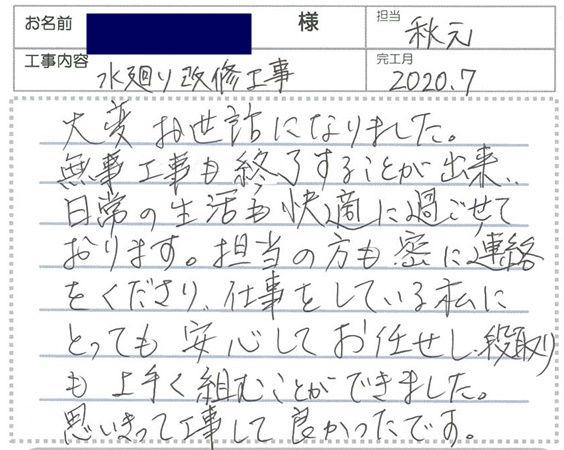 お名前 様 担当 秋元
工事内容 水廻り改修工事 完工月 2020.7
大変お世話になりました。
無事工事も終了することが出来、
日常の生活も快適に過ごせて
おります。担当の方も密に連絡
をくださり、仕事をしている私に
とっても安心してお任せし、段取り
も上手く組むことができました。
思いきって工事して良かったです。